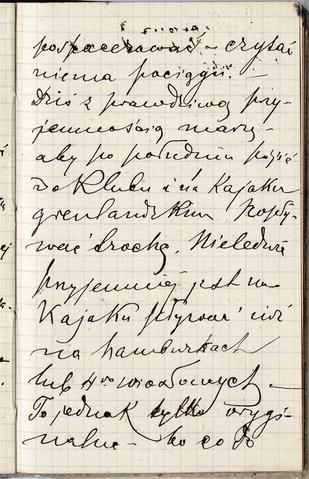 pospacerować – czytać
niema pociągu. –
Dziś z prawdziwą przy-
jemnością marzę
aby po południu pójść
do Klubu i na Kajaku
grenlandzkim popły-
wać trochę. Nieledwie
przyjemniej jest na
Kajaku pływać niż
na hamburkach
lub 4ro wiosłowych –
To jednak tylko orygi-
nalne – bo co do